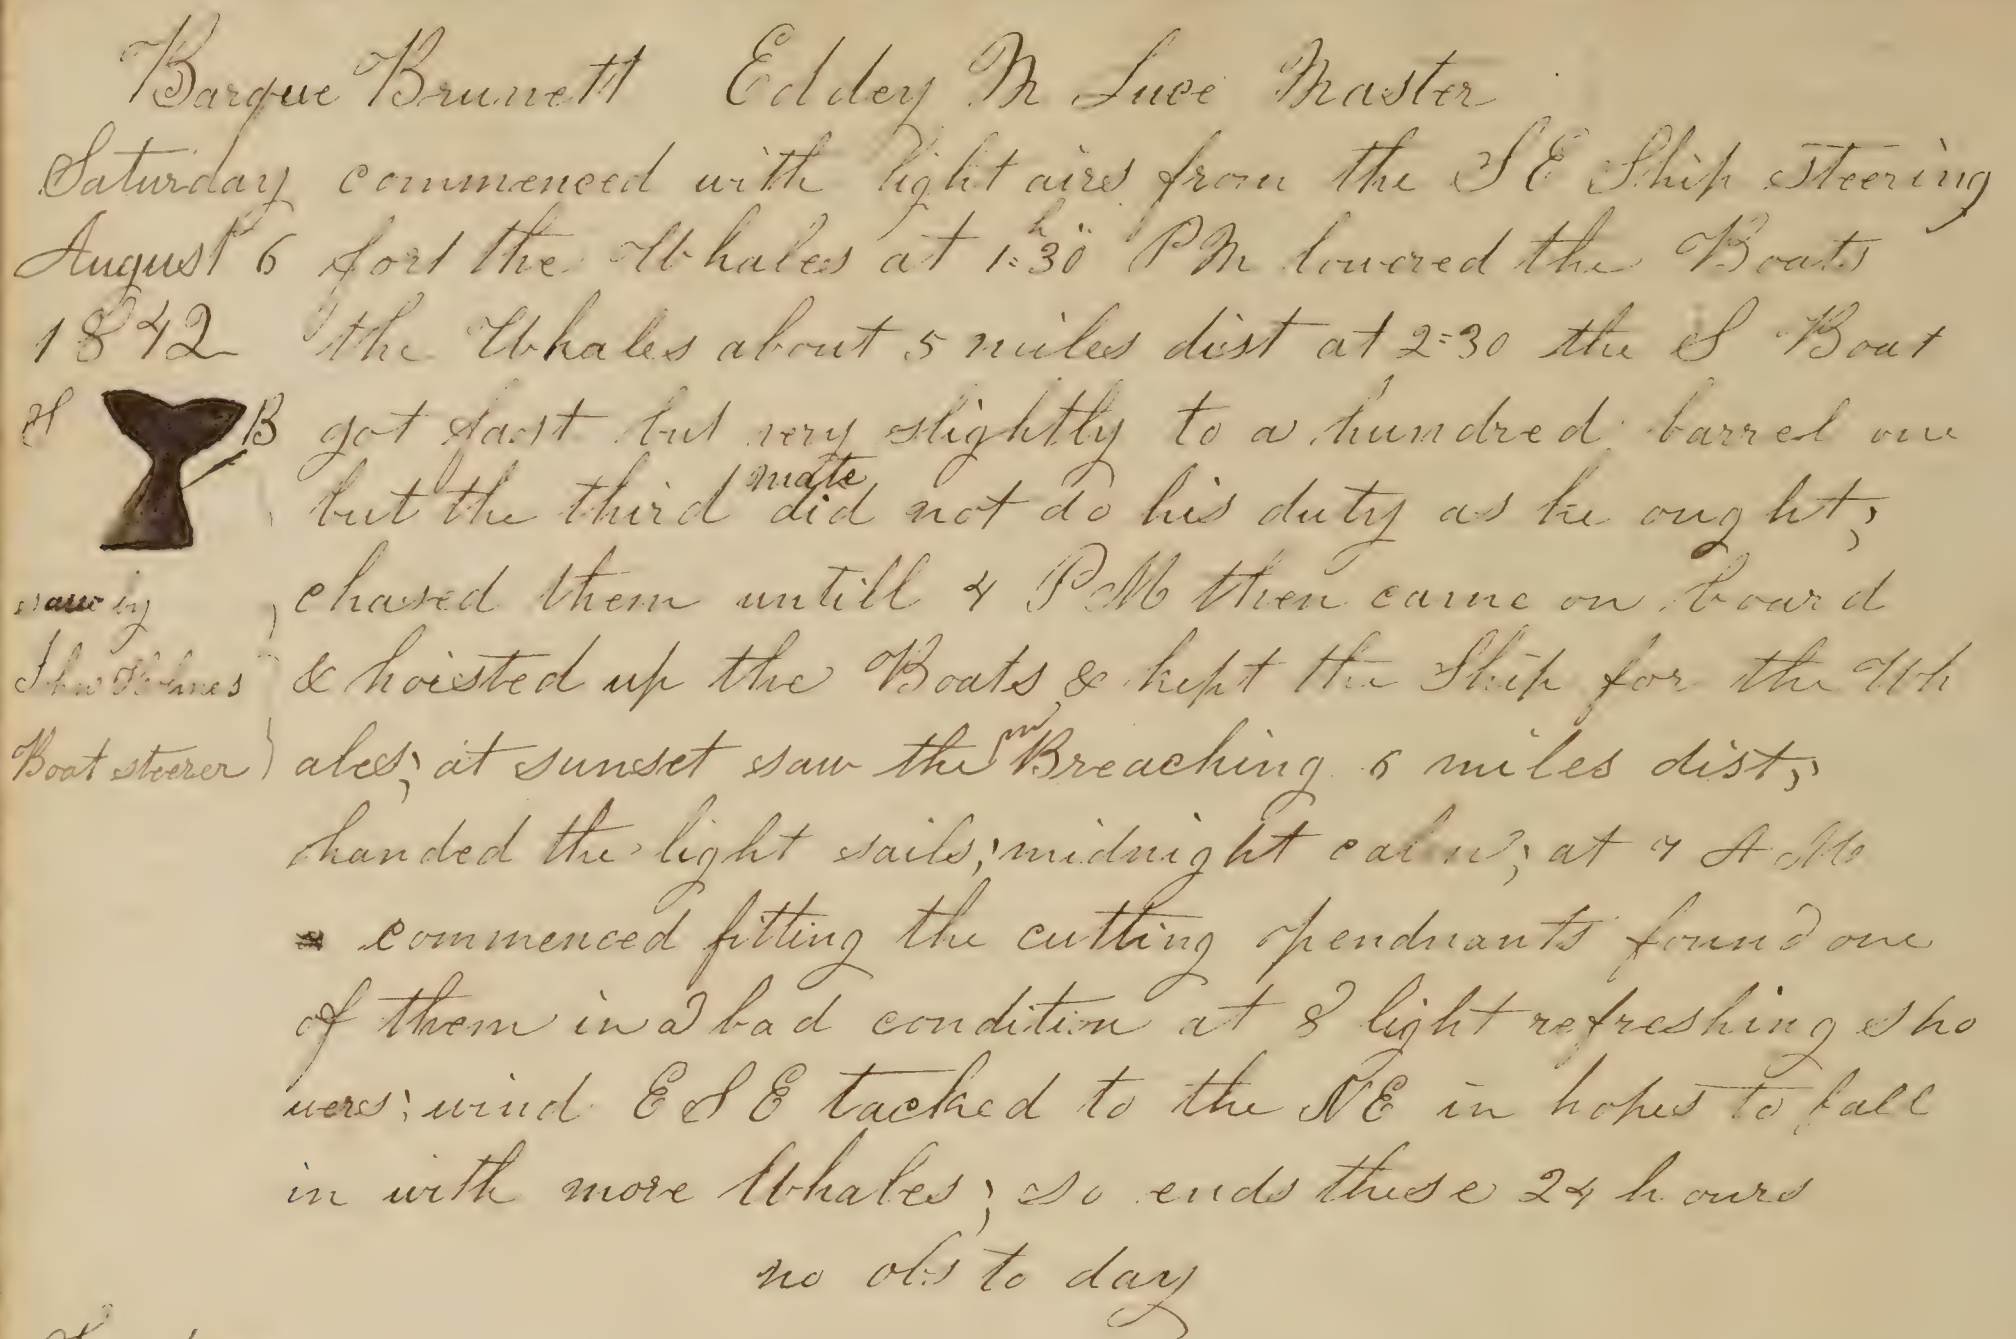 Barque Brunett Eddey M Luce Master
Saturday commenced with light airs from the S E Ship steering
August 6 fort the Whales at 1=30 h PM lowered the Boats
1842 the Whales about 5 miles dist at 2=30 the S Boat
S B got fast but very slightly to a hundred barrel one
but the third mate did not do his duty as he ought;
saw by chased them untill 4 PM then came on board
John Holmes & hoisted up the Boats & kept the Ship for the Wh
Boat steerer ales; at sunset saw the m Breaching 6 miles dist;
handed the light sails; midnight calm; at 7 A M
commenced fitting the cutting pendnants found one
of them in a bad condition at 8 light refreshing sho
wers; wind E S E tacked to the N E in hopes to fall
in with more Whales; so ends these 24 hours
no obs to day